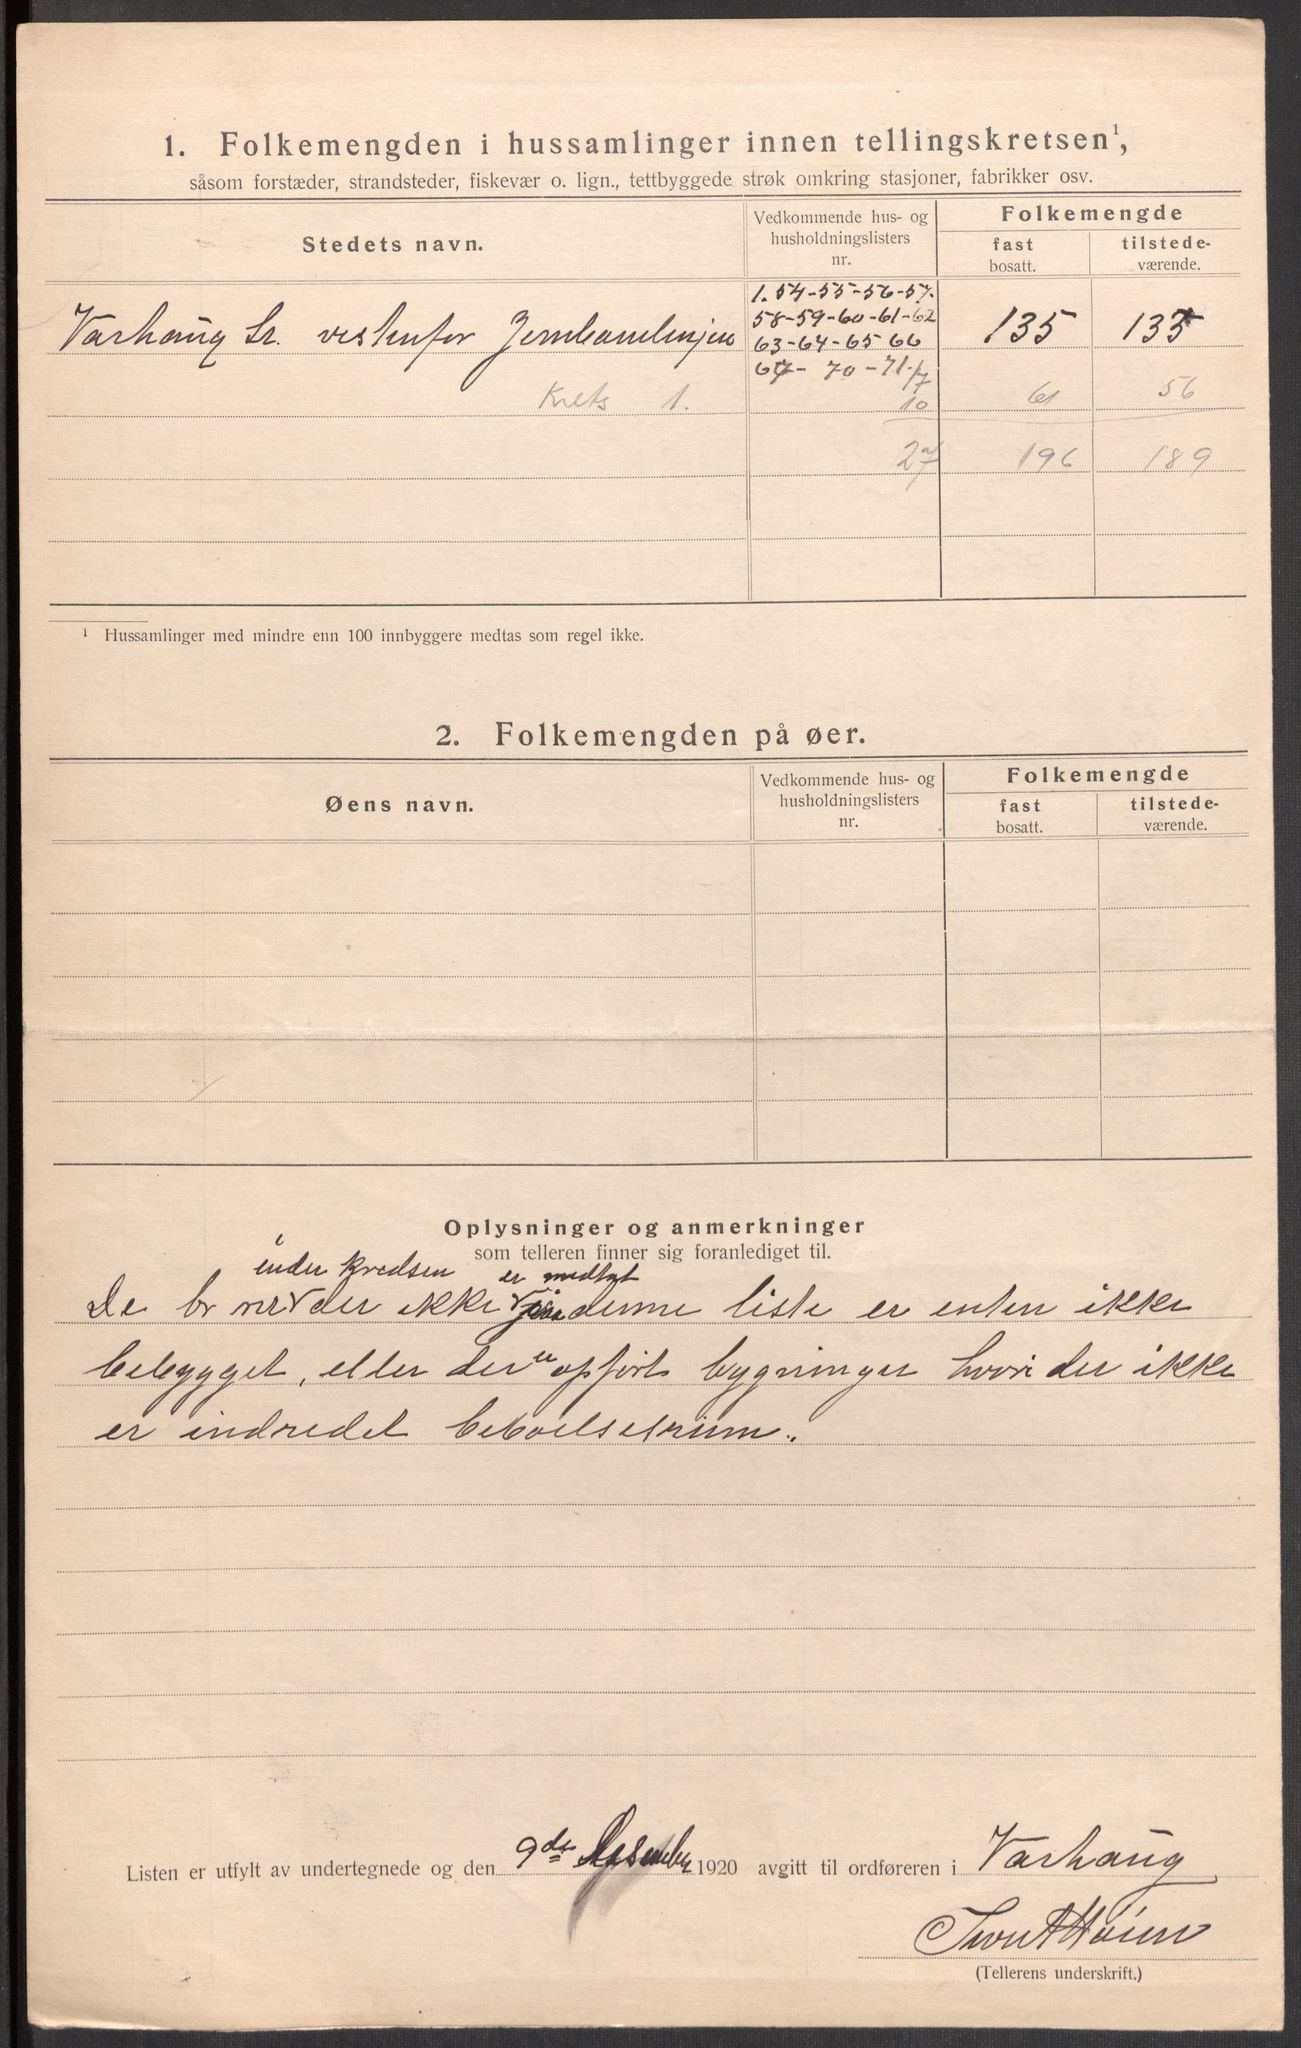 1. Folkemengden i hussamlinger innen tellingskretsen¹,
såsom forstæder, strandsteder, fiskevær o. lign., tettbyggede strøk omkring stasjoner, fabrikker osv.
Stedets navn.
Vedkommende hus- og husholdningslisters nr.
Folkemengde
fast bosatt.
tilstede-værende.
1. 54-55-56-57-
58-59-60-61-62
Varhaug St. vestenfor Jernbanelinjen 135 133
63-64-65 66
67- 70-71.17
Krets 1. 10 61 56
27 196 189
¹ Hussamlinger med mindre enn 100 innbyggere medtas som regel ikke.
2. Folkemengden på øer.
Øens navn.
Vedkommende hus- og husholdningslisters nr.
Folkemengde
fast bosatt.
tilstede-værende.
Oplysninger og anmerkninger
som telleren finner sig foranlediget til.
under kredsen er medtat
De br nr der ikke i denne liste er enten ikke
bebygget, eller der er opført bygninger hvori der ikke
er indredet beboelsesrum.
Listen er utfylt av undertegnede og den 9de Desember 1920 avgitt til ordføreren i Varhaug
(Tellerens underskrift.)